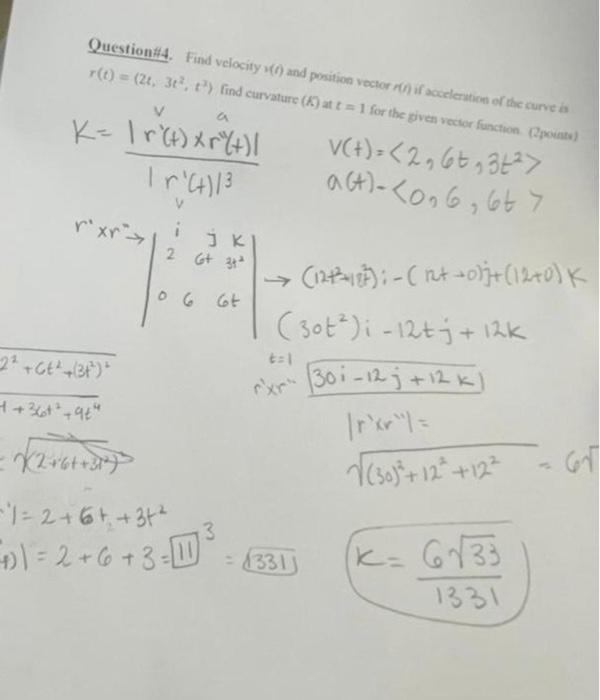 Question#4. Find velocity v(t) and position vector r(t) if acceleration of the curve is
r(t) = (2t, 3t², t³) find curvature (K) at t = 1 for the given vector function. (2points)
v a
K= |r'(t) x r"(t)|
|r'(t)|³
v
V(t)=<2, 6t, 3t²>
a(t)-<0, 6, 6t>
r'xr"→ | i j k |
2 6t 3t²
0 6 6t
→ (12t²+18t²)i -(12t-0)j+(12+0)K
(30t²)i -12tj + 12k
t=1
r'xr" 30i-12j+12k)
|r'xr"|=
√(30)²+12²+12² = 6√
2² + 6t² +(3t²)²
+36t² + 9t⁴
= √(2+6t+3t²)²
'|= 2+6t+3t²
|= 2+6+3=11 ³ = 1331
K= 6√33
1331